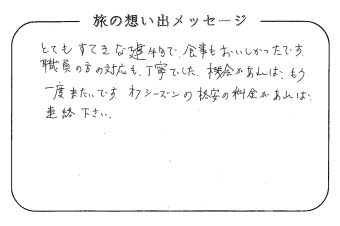 旅の想い出メッセージ
とてもすてきな建物で、食事もおいしかったです。
職員の方の対応も、丁寧でした。機会があれば、もう
一度来たいです。オフシーズンの格安の料金があれば、
連絡下さい。